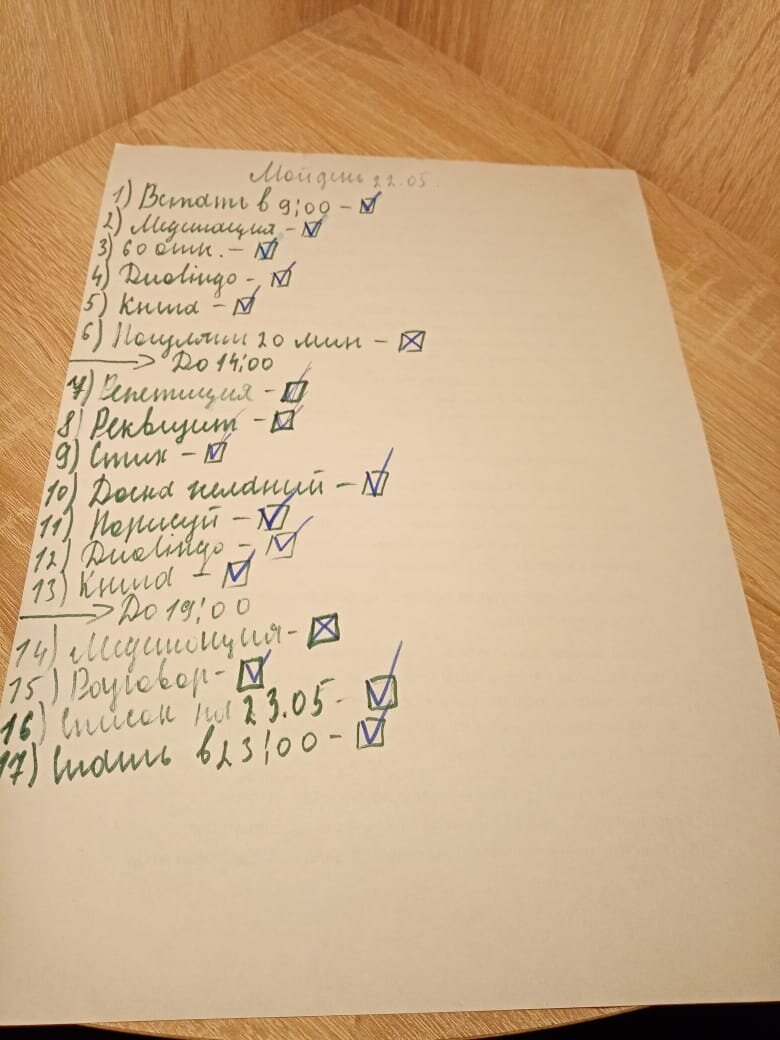 Мой день 22.05.
1) Встать в 9:00 -
2) Медитация -
3) 60 отж. -
4) Duolingo -
5) Книга -
6) Погуляти 20 мин -
До 14:00
7) Репетиция -
8) Реквизит -
9) Стих -
10) Доска желаний -
11) Порисуй -
12) Duolingo -
13) Книга -
До 19:00
14) Медитация -
15) Разговор -
16) Список на 23.05 -
17) Спать в 23:00 -